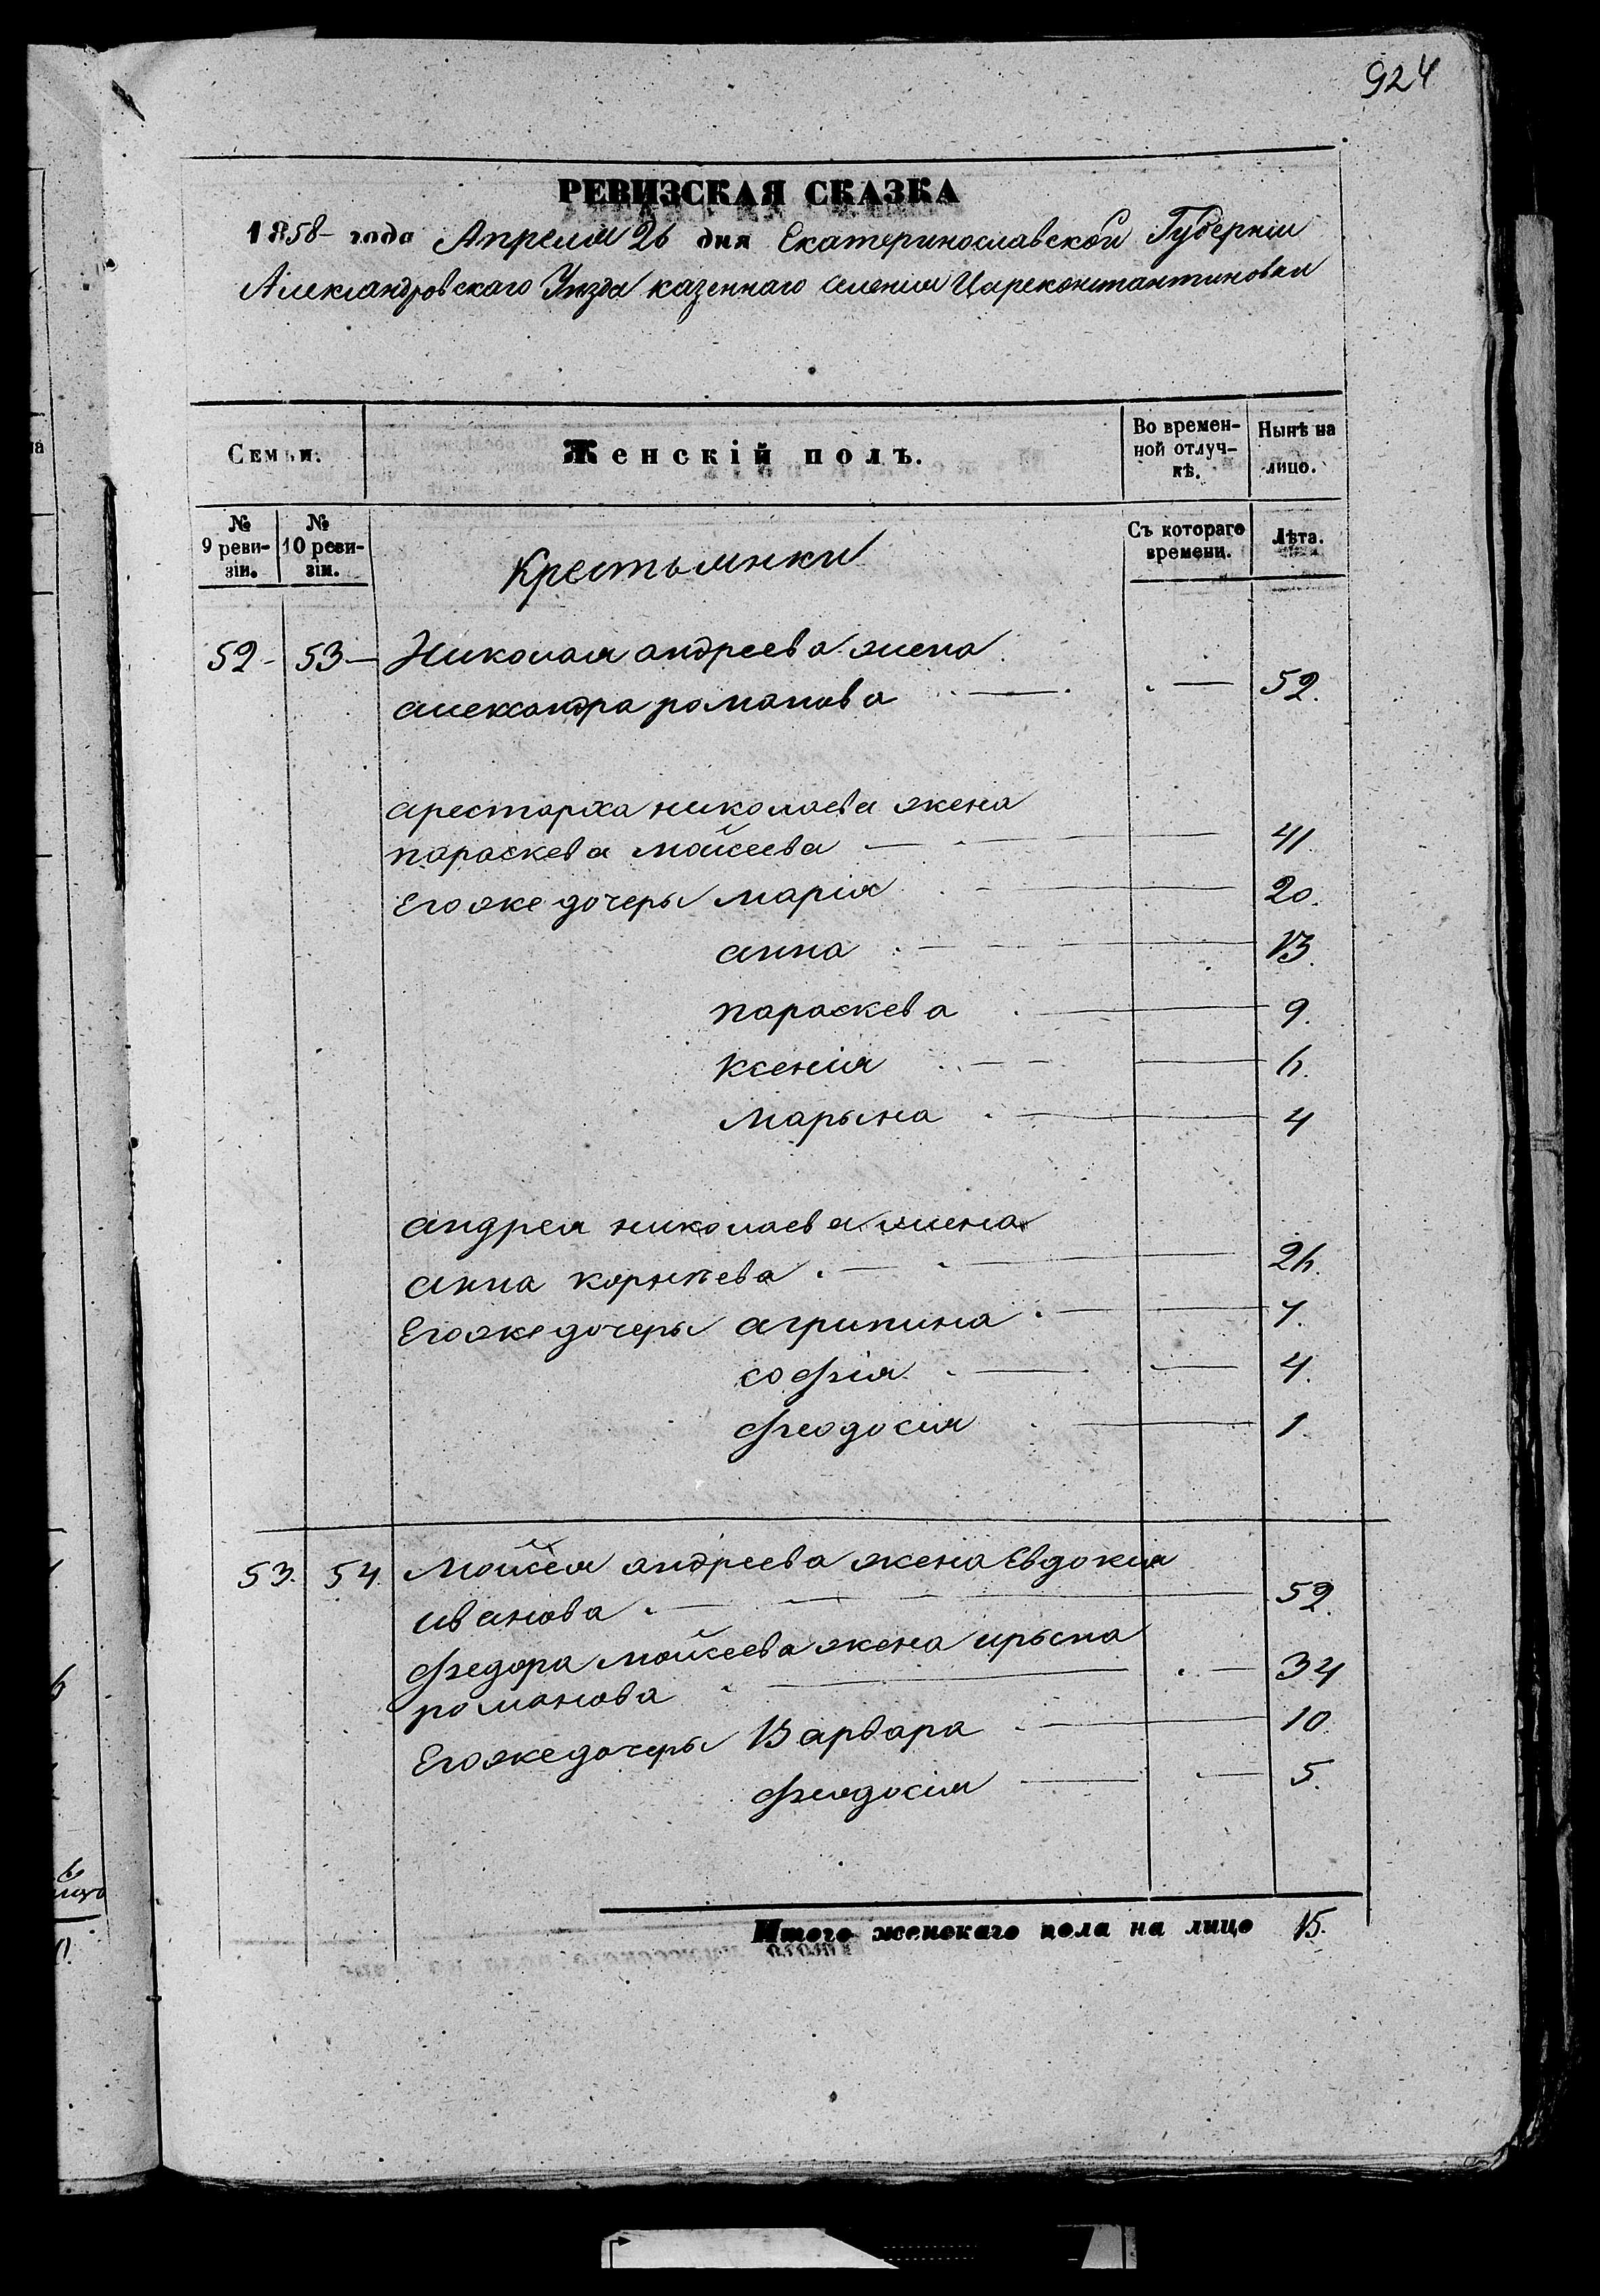 924
РЕВИЗСКАЯ СКАЗКА
1858 года Апреля 26 дня Екатеринославской Губернiи
Александровскаго Уезда казеннаго селения Цареконстантиновки
Семьи.
Женскiй полъ.
Во времен-
ной отлуч-
кѣ.
Нынѣ на
лицо.
№
9 реви-
зiи.
№
10 реви-
зiи.
Крестьянки
Съ котораго
времени.
Лѣта.
52 - 53 - Николая андреева жена
александра романова - - 52.
арестарха николаева жена
параскева мойсеева - 41.
Его же дочеры марiя - 20.
анна - 13.
параскева - 9.
ксенiя - 6.
Марына - 4
андрея николаева жена
анна корнѣева - 26.
Его же дочеры агрипина -
софiя - 4.
феодосiя - 1
53. 54. Мойсея андреева жена Евдокия
иванова - 52.
федора мойсеева жена ирына
романова - 34
Его же дочеры Варвара - 10
феодосiя - 5.
Итого женскаго пола на лицо 15.